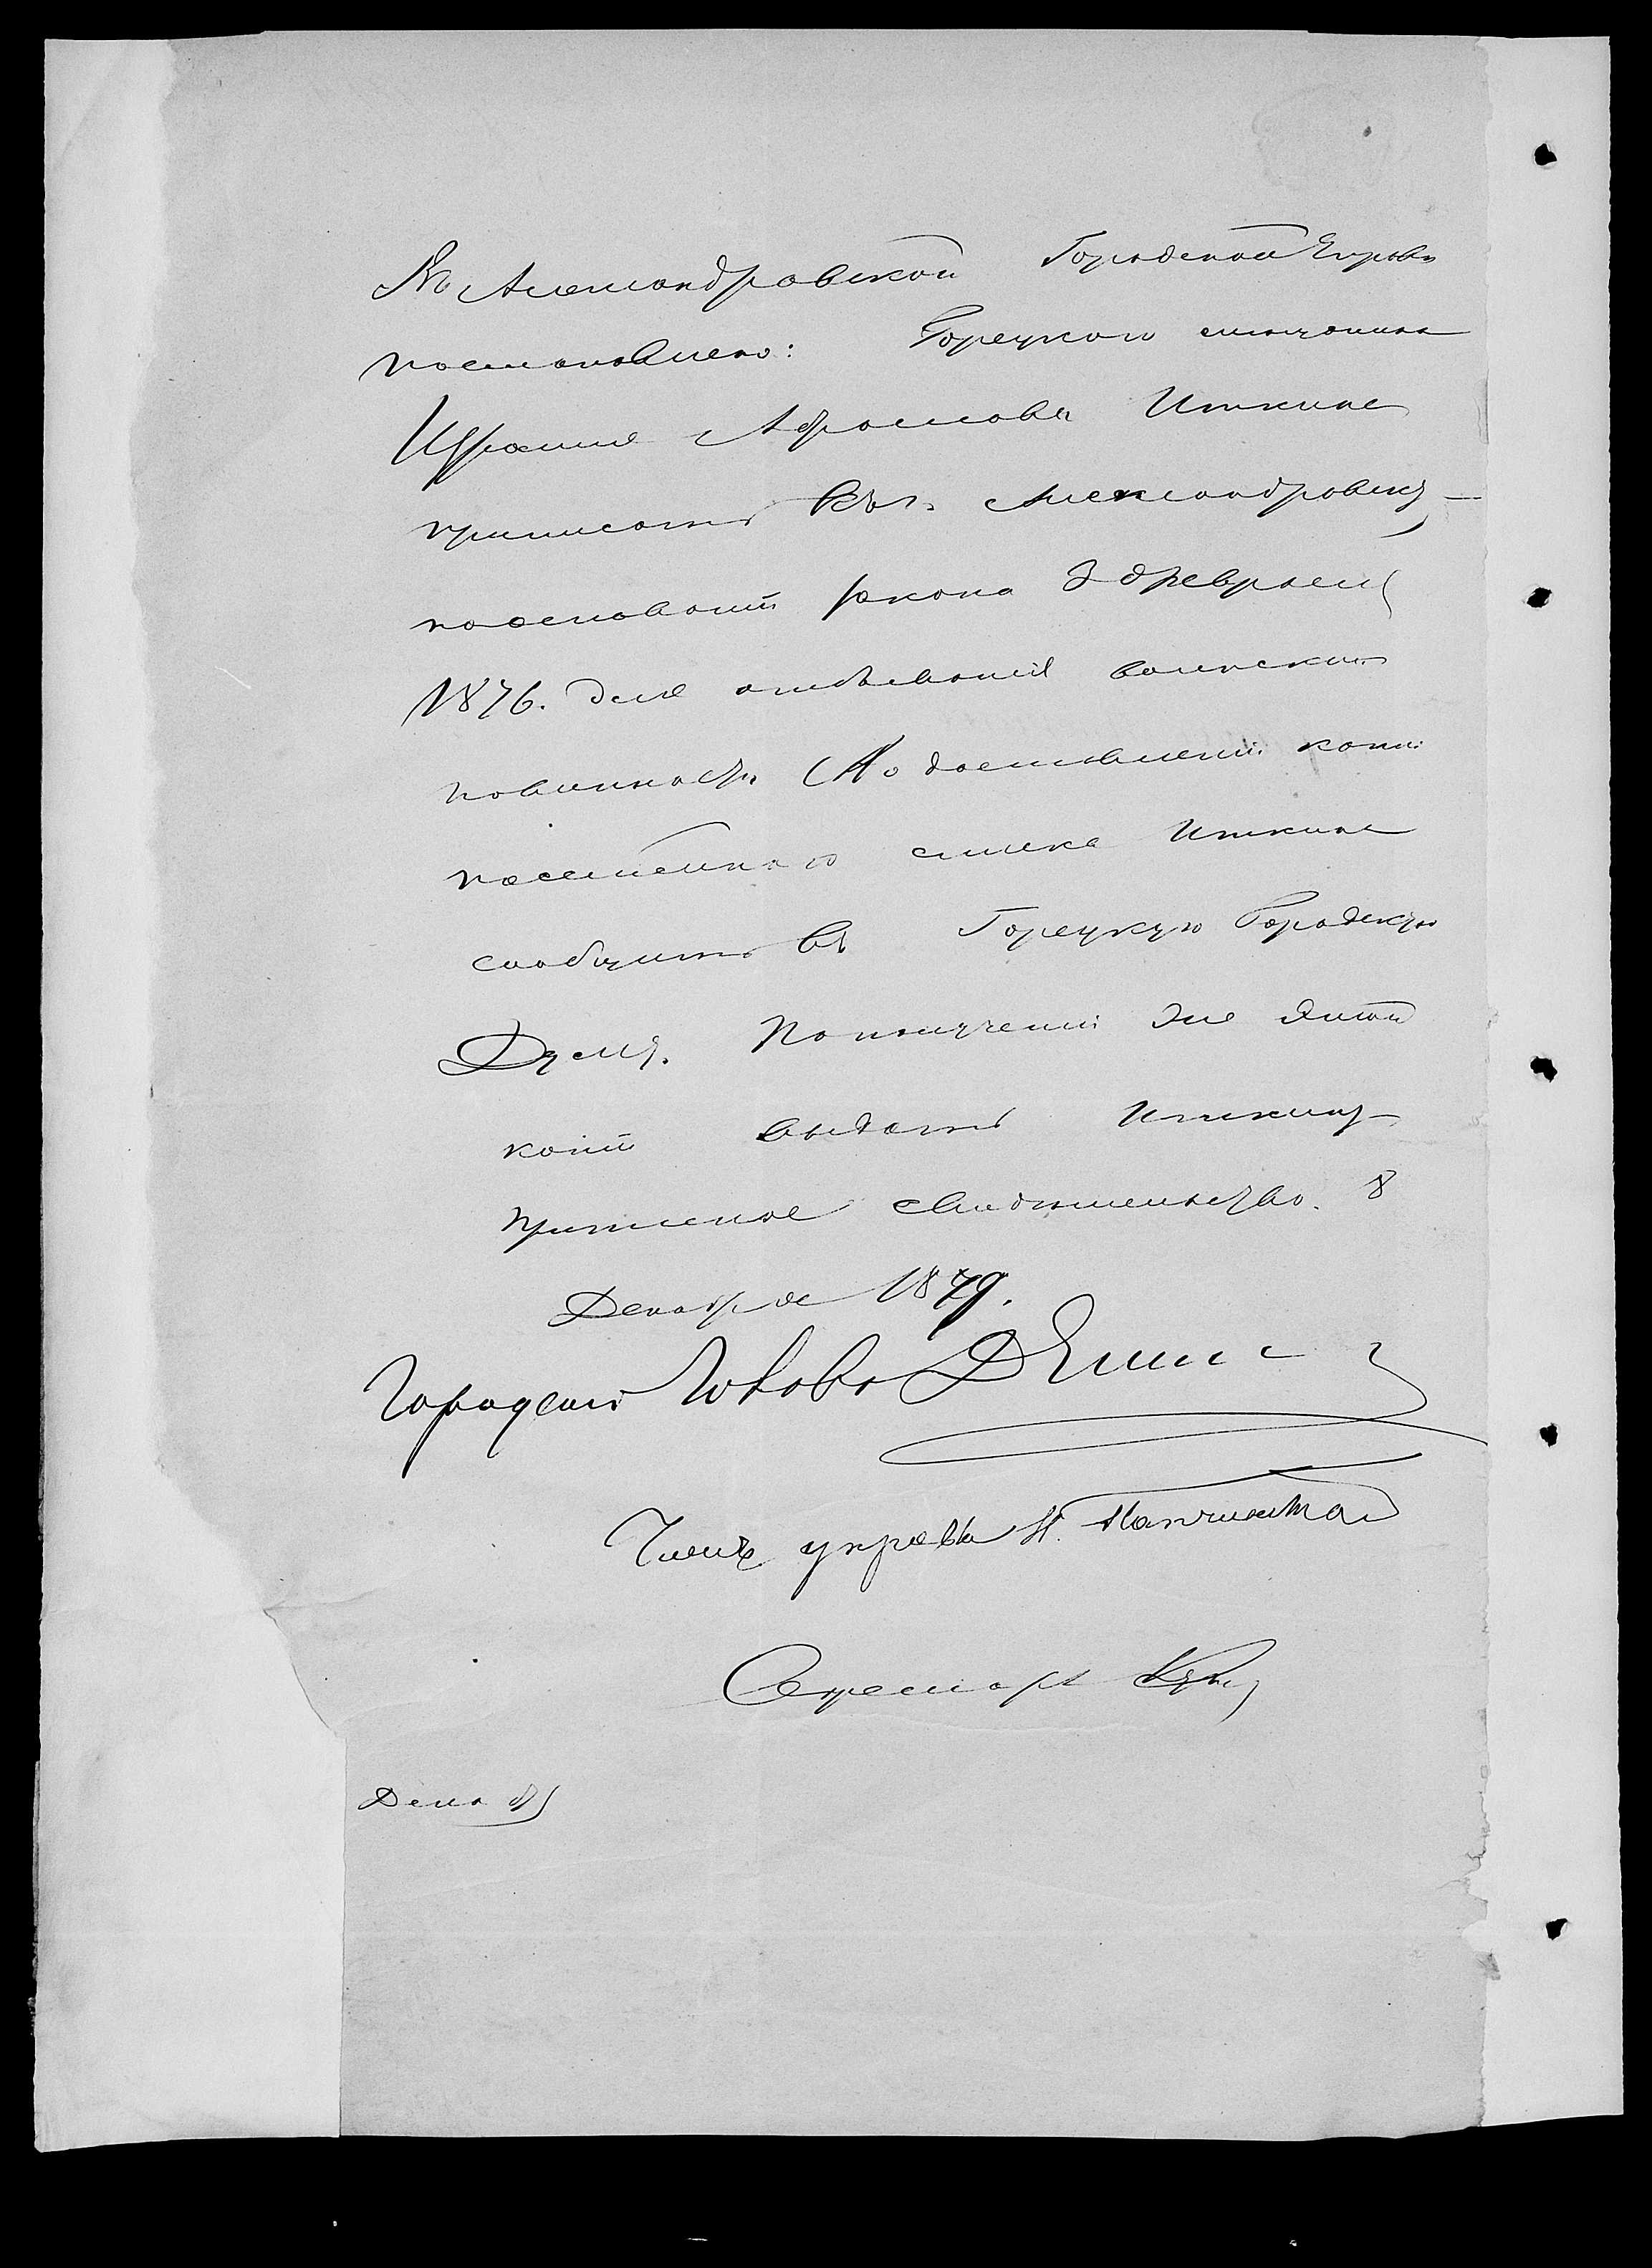 Въ Александровской Городской Управѣ
постановлено: Горецкого мѣщанина
Израиля Абрамова Иткина
приписать къ г. Александровску
на основаніи закона 3 Февраля
1876. для отбыванія воинской
повинности По доставленіи копіи
посемейнаго списка Иткина
сообщить въ Горецкую Городскую
Думу. По полученіи же этой
копіи выдать Иткину
приписное свидѣтельство. 8
Декабря 1879.
Городской Голова
Членъ управы Н.
Секретарь
Декабр